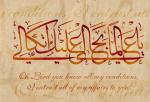 يا عليما بحالي عليك اتكالي
Oh Lord you know all my conditions,
(I) entrust all of my affairs to you